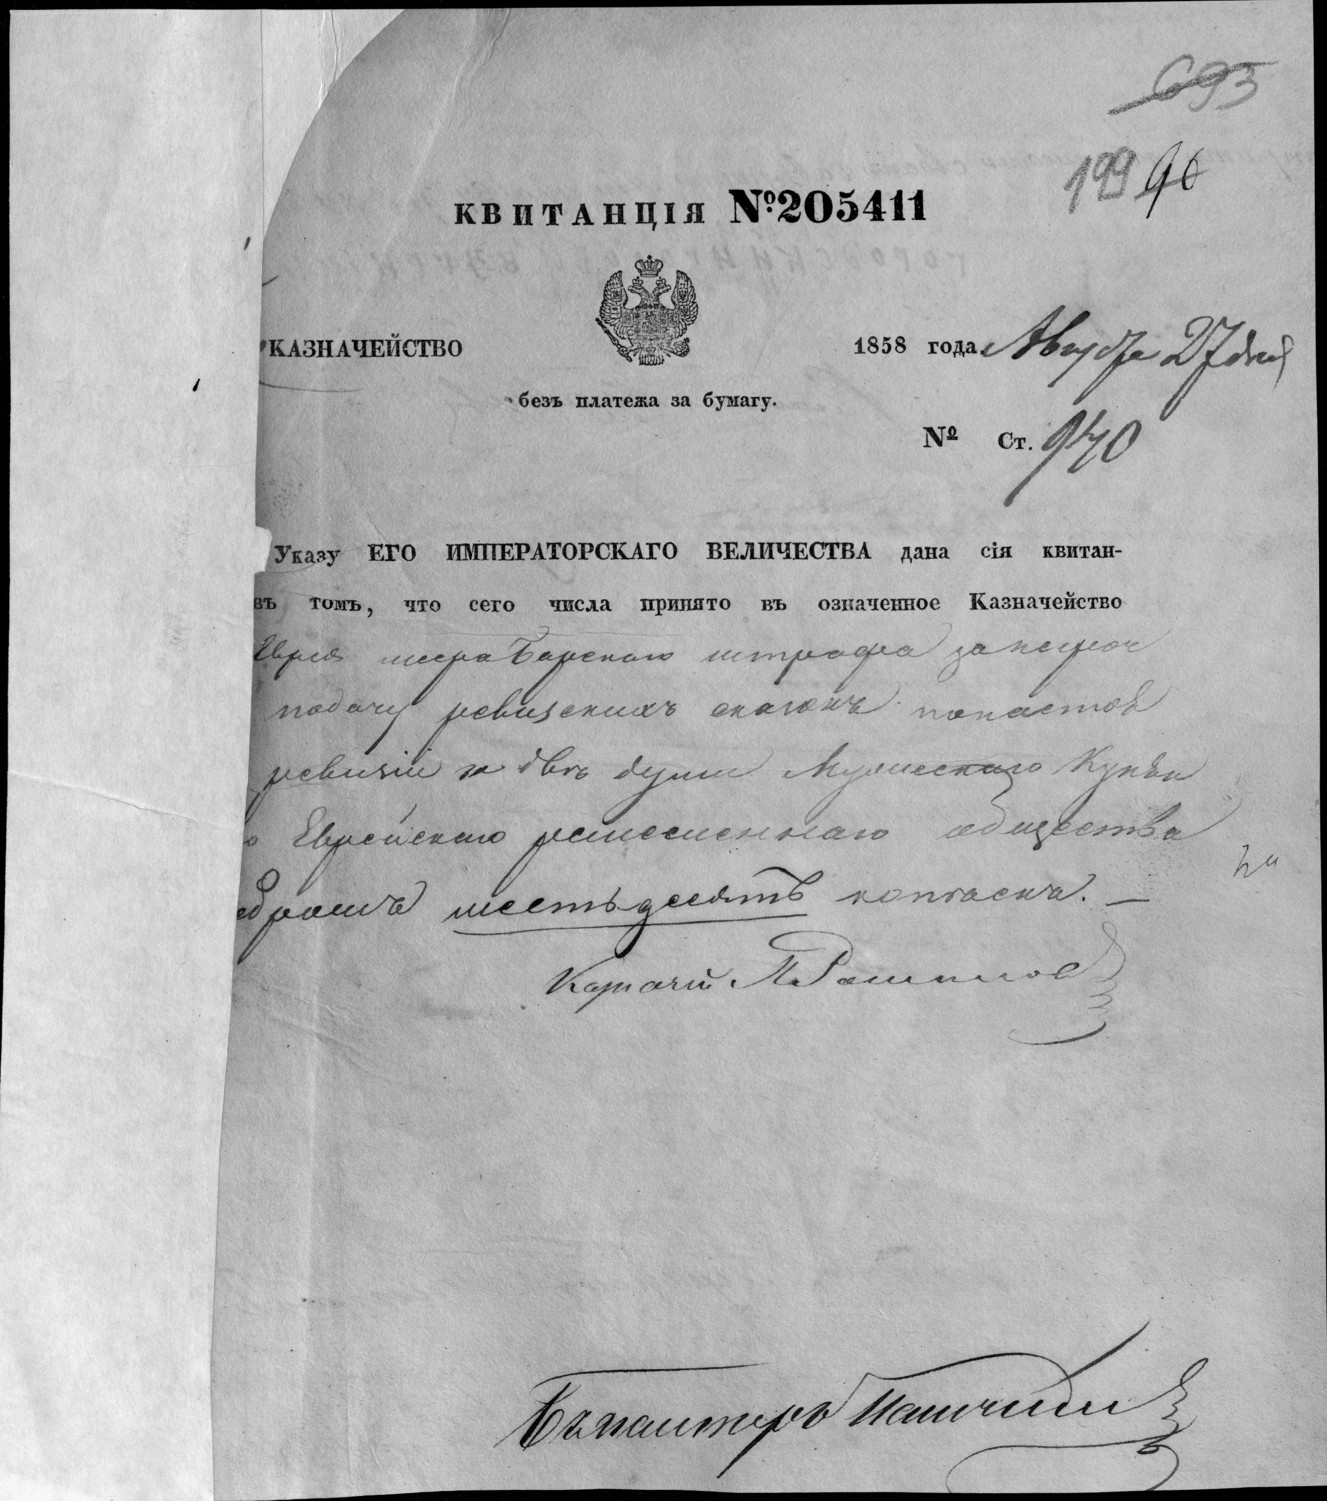 693
199 96
КВИТАНЦІЯ №205411
КАЗНАЧЕЙСТВО
1858 года Августа 27 дня
безъ платежа за бумагу.
№ Ст. 940
Указу ЕГО ИМПЕРАТОРСКАГО ВЕЛИЧЕСТВА дана сія квитан-
въ томъ, что сего числа принято въ означенное Казначейство
Еврея штрафа за
подачу ревизскихъ сказокъ
ревизіи за двѣ души
Еврейскаго ремесленнаго общества
шестьдесятъ копѣекъ. —
Казначей
Бухгалтеръ